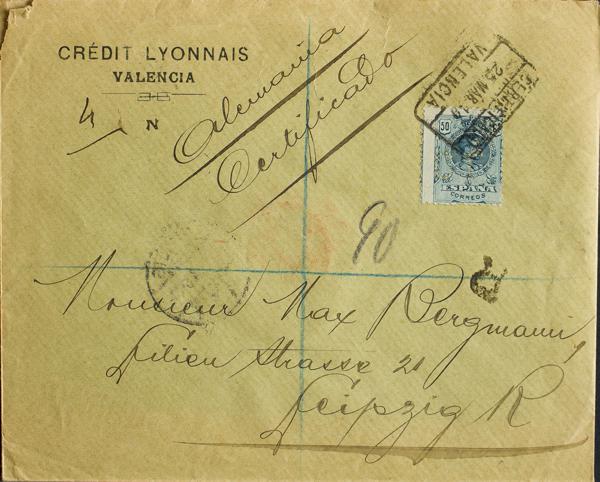 CRÉDIT LYONNAIS
VALENCIA
N
4
Alemania
Certificado
CERTIFICADO
25 MAR 10
VALENCIA
50
ESPAÑA
CORREOS
90
R
Monsieur Max Bergmann,
Lilien Strasse 21
Leipzig R